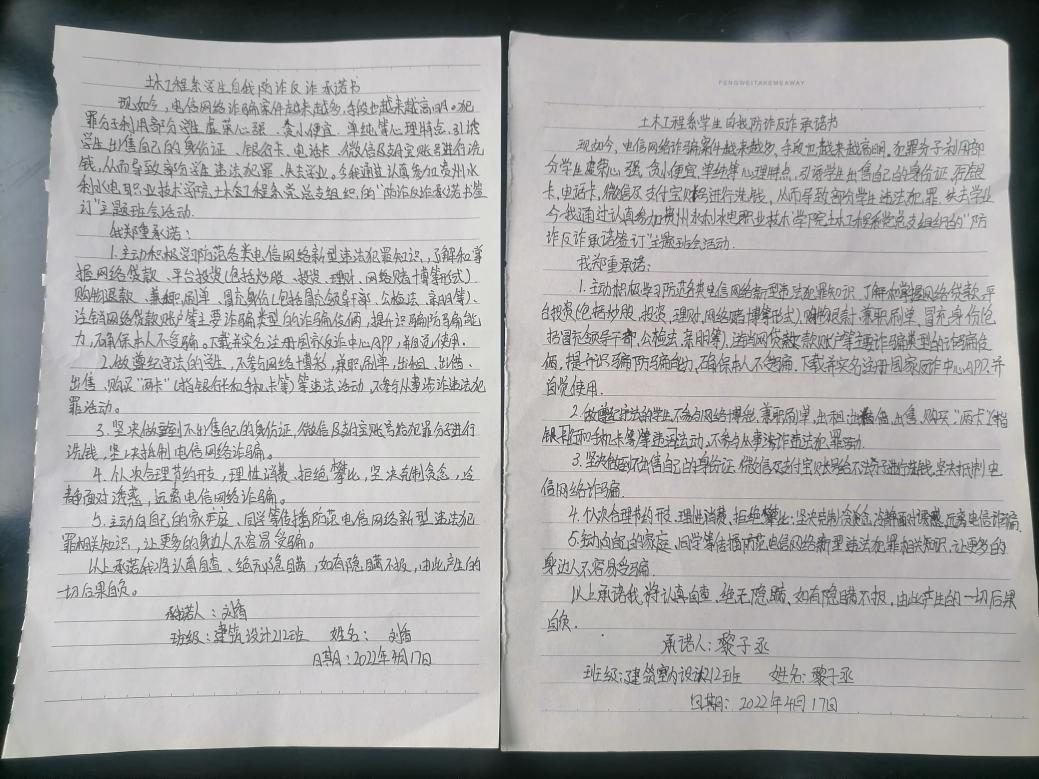 土木工程系学生自我防诈反诈承诺书
现如今,电信网络诈骗案件越来越多,手段也越来越高明。犯
罪分子利用部分学生虚荣心强、贪小便宜、单纯等心理特点,引诱
学生出售自己的身份证、银行卡、电话卡、微信及支付宝账号进行洗
钱,从而导致部分学生违法犯罪、失去学业。今我通过认真参加贵州水
利水电职业技术学院土木工程系党总支组织的“防诈反诈承诺书签
订”主题班会活动.
我郑重承诺:
1.主动积极学习防范各类电信网络新型违法犯罪知识,了解和掌
握网络贷款、平台投资(包括炒股、投资、理财、网络赌博等形式)、
购物退款、兼职刷单、冒充身份(包括冒充领导干部、公检法、亲朋等)、
注销网络贷款账户等主要诈骗类型的诈骗伎俩,提升识骗防骗能
力,确保本人不受骗。下载并实名注册国家反诈中心APP,并自觉使用.
2.做遵纪守法的学生,不参与网络博彩,兼职刷单,出租、出借、
出售、购买“两卡”(指银行卡和手机卡等)等违法活动,不参与从事涉诈违法犯
罪活动。
3.坚决做到不出售自己的身份证,微信及支付宝账号给犯罪分子进行
洗钱,坚决抵制电信网络诈骗。
4.从次合理节约开支,理性消费、拒绝攀比,坚决克制贪念,冷
静面对诱惑,远离电信网络诈骗。
5.主动向自己的家庭、同学等传播防范电信网络新型违法犯
罪相关知识,让更多的身边人不容易受骗。
以上承诺我将认真自查、绝无隐瞒,如有隐瞒不报,由此产生的
一切后果自负。
承诺人:刘
班级:建筑设计212班 姓名:刘
日期:2022年4月17日
FENGWEITAKEMEAWAY
土木工程系学生自我防诈反诈承诺书
现如今、电信网络诈骗案件越来越多、手段也越来越高明.犯罪分子利用部
分学生虚荣心强、贪小便宜、单纯等心理特点,引诱学生出售自己的身份证、银
卡,电话卡,微信及支付宝账号进行洗钱、从而导致部分学生违法犯罪、失去学业
今我通过认真参加贵州水利水电职业技术学院土木工程系党总支组织的“防
诈反诈承诺签订”主题班会活动.
我郑重承诺:
1.主动积极学习防范各类电信网络新型违法犯罪知识、了解和掌握网络贷款、平
台投资(包括炒股、投资,理财,网络赌博等形式),购物退款、兼职刷单、冒充身份(包
括冒充领导干部,公检法、亲朋等),注销网贷款账户等主要诈骗类型的诈骗伎
俩,提升识骗防骗能力,确保本人不受骗.下载并实名注册国家反诈中心APP、并
自觉使用.
2.做遵纪守法的学生、不参与网络博彩、兼职刷单、出租、出借、出售、购买、“两卡”(指
银行和手机卡等)等违法活动、不参与从事涉诈违法犯罪活动.
3.坚决做到不出售自己的身份证、微信及支付宝账号给不法分子进行洗钱,坚决抵制电
信网络诈骗.
4.从次合理节约开支、理性消费、拒绝攀比,坚决克制贪念,冷静面对诱惑、远离电信诈骗.
5.主动向自己的家庭、同学等传播防范电信网络新型违法犯罪相关知识、让更多的
身边人不容易受骗.
以上承诺我将认真自查、绝无隐瞒、如有隐瞒不报、由此产生的一切后果
自负.
承诺人:黎子丞
班级:建筑室内设计212班 姓名:黎子丞
日期:2022年4月17日